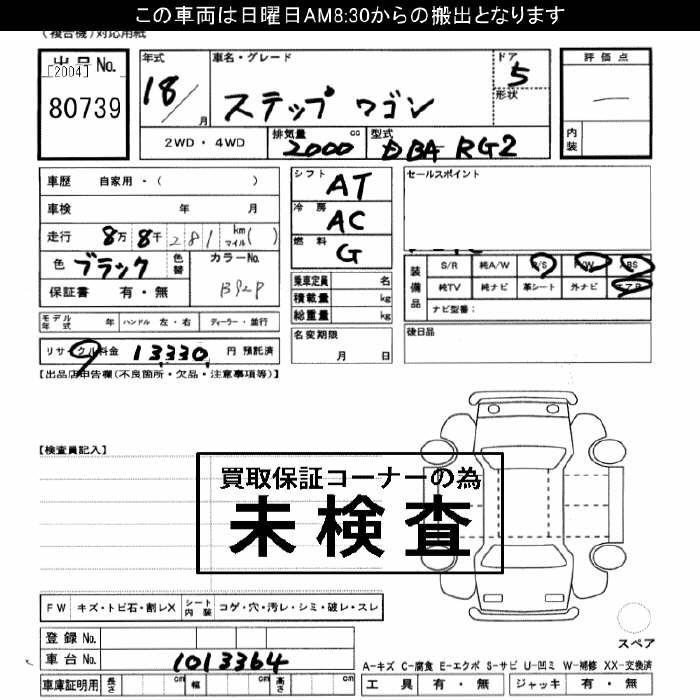 この車両は日曜日AM8:30からの搬出となります
(複合機)対応用紙
出品No.
[2004]
80739
年式
18/
月
車名・グレード
ステップ ワゴン
ドア
5
形状
評価点
内装
2WD・4WD
排気量 cc
2000
型式
DBA RG2
車歴 自家用・( )
車検 年 月
走行 8万 8千 281 km マイル( )
色 ブラック 色替
カラーNo.
B92P
保証書 有・無
シフト AT
冷房 AC
燃料 G
セールスポイント
乗車定員 名
積載量 kg
総重量 kg
装備品
S/R 純A/W P/S P/W ABS
純TV 純ナビ 革シート 外ナビ エアB
ナビ型番：
モデル年式 年 ハンドル 左・右 ディーラー・並行
名変期限
月 日
後日品
リサイクル料金 13,330 円 預託済
【出品店申告欄(不良箇所・欠品・注意事項等)】
【検査員記入】
買取保証コーナーの為
未検査
FW キズ・トビ石・割レX シート内装 コゲ・穴・汚レ・シミ・破レ・スレ
スペア
登録No.
車台No. 1013364
A-キズ C-腐食 E-エクボ S-サビ U-凹ミ W-補修 XX-交換済
車庫証明用 長さ cm 幅 cm 高さ cm
工具 有・無 ジャッキ 有・無